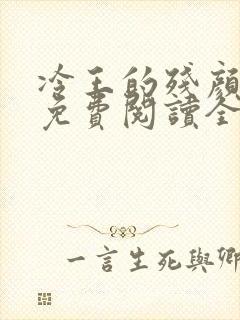 冷王的殘顏
免費閱讀全
一言生死與卿